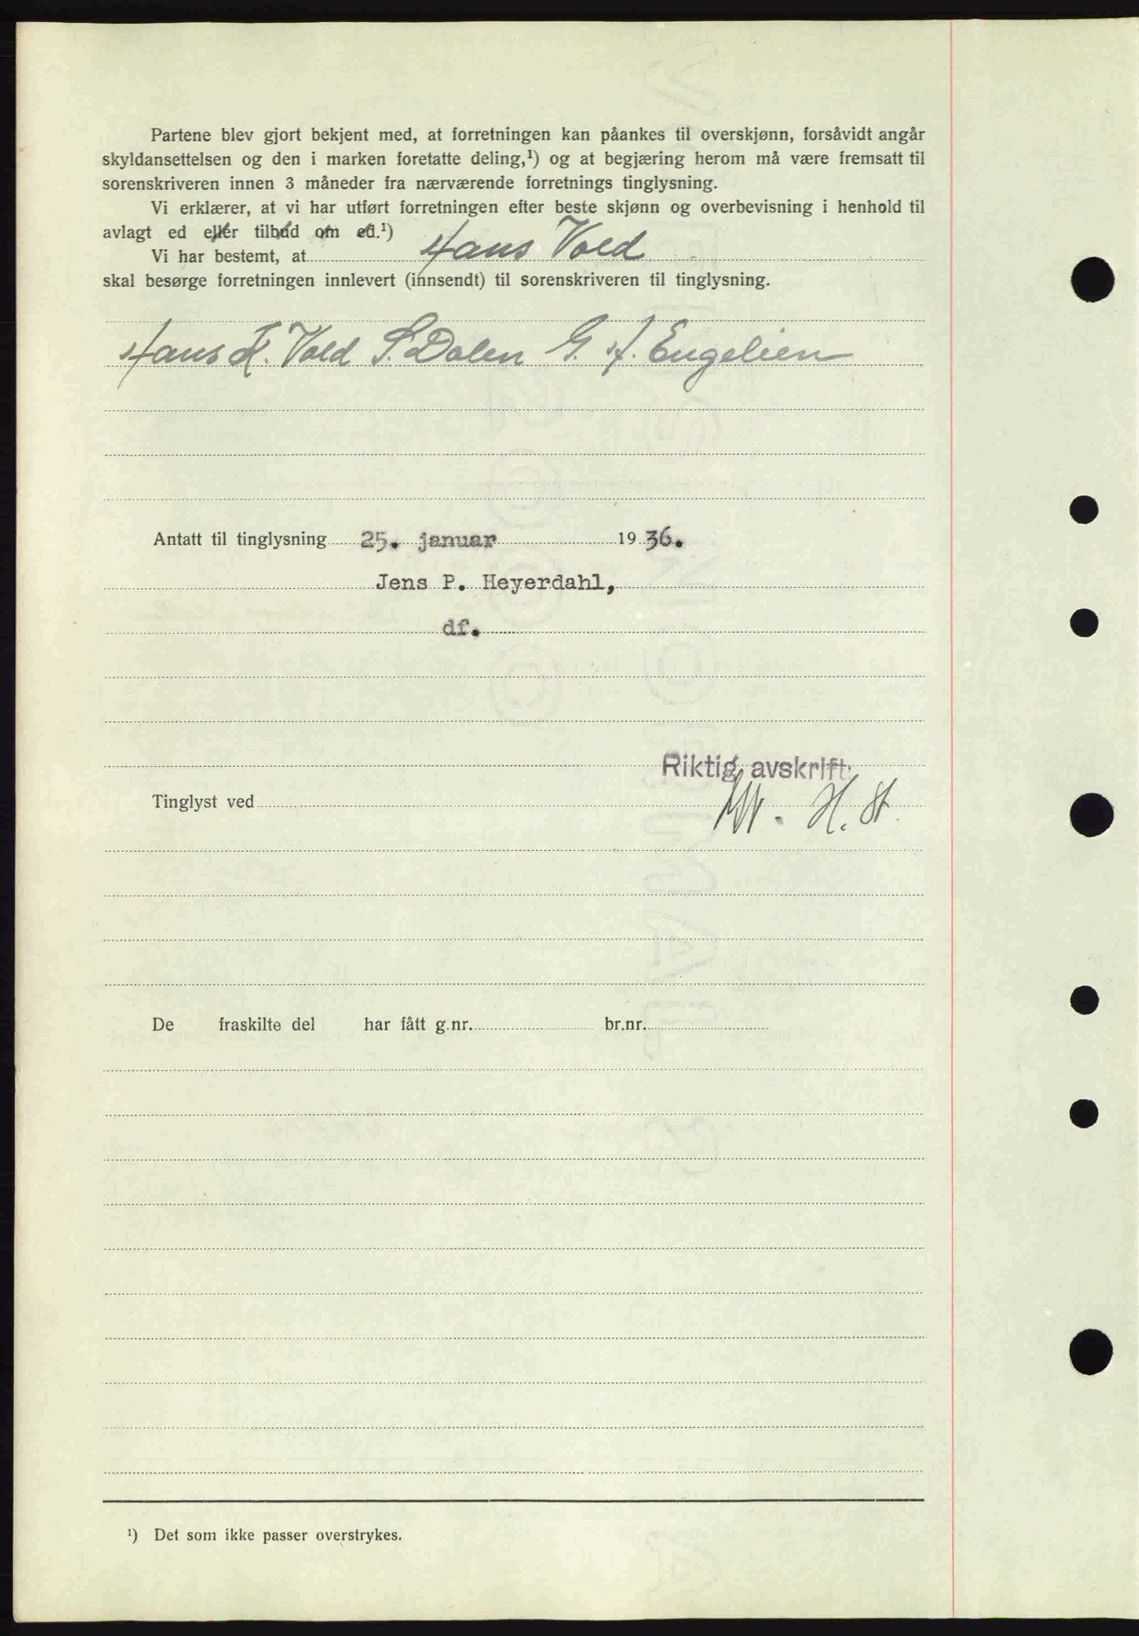 Partene blev gjort bekjent med, at forretningen kan påankes til overskjønn, forsåvidt angår
skyldansettelsen og den i marken foretatte deling,¹) og at begjæring herom må være fremsatt til
sorenskriveren innen 3 måneder fra nærværende forretnings tinglysning.
Vi erklærer, at vi har utført forretningen efter beste skjønn og overbevisning i henhold til
avlagt ed eller tilbud om ed.¹)
Vi har bestemt, at Hans Vold
skal besørge forretningen innlevert (innsendt) til sorenskriveren til tinglysning.
Hans K. Vold S. Dalen G. A. Engelien
Antatt til tinglysning 25. januar 1936.
Jens P. Heyerdahl,
df.
Riktig avskrift:
Tinglyst ved
H. St.
De fraskilte del har fått g.nr. br.nr.
¹) Det som ikke passer overstrykes.